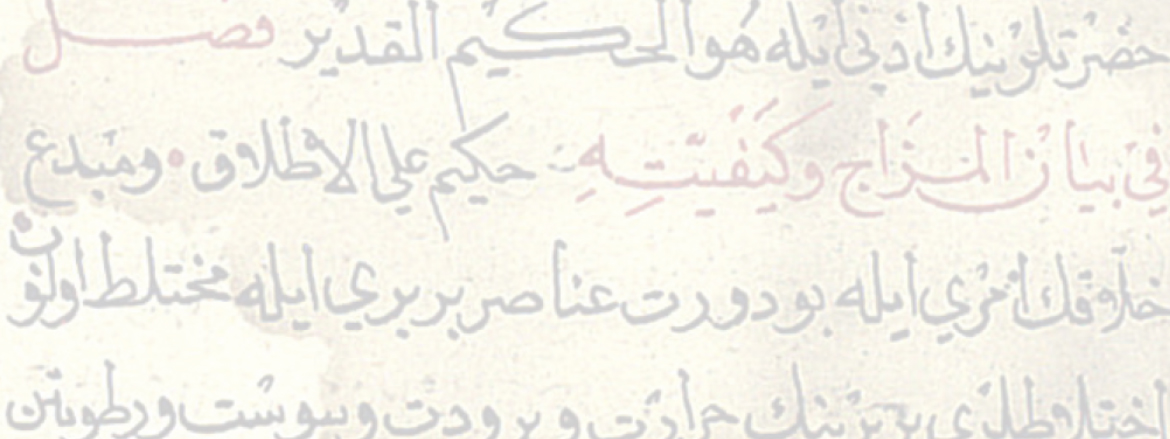 حضرتلرينك اذني ايله هو الحكيم القدير فصل
في بيان المزاج وكيفيته حكيم علي الاطلاق ومبدع
خلاقك امري ايله بو دورت عناصر بربري ايله مختلط اولوب
اختلاطلري بربرينك حرارت و برودت ويبوست ورطوبتن